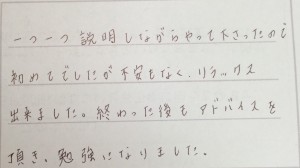 一つ一つ説明しながらやって下さったので
初めてでしたが不安もなく、リラックス
出来ました。終わった後もアドバイスを
頂き、勉強になりました。